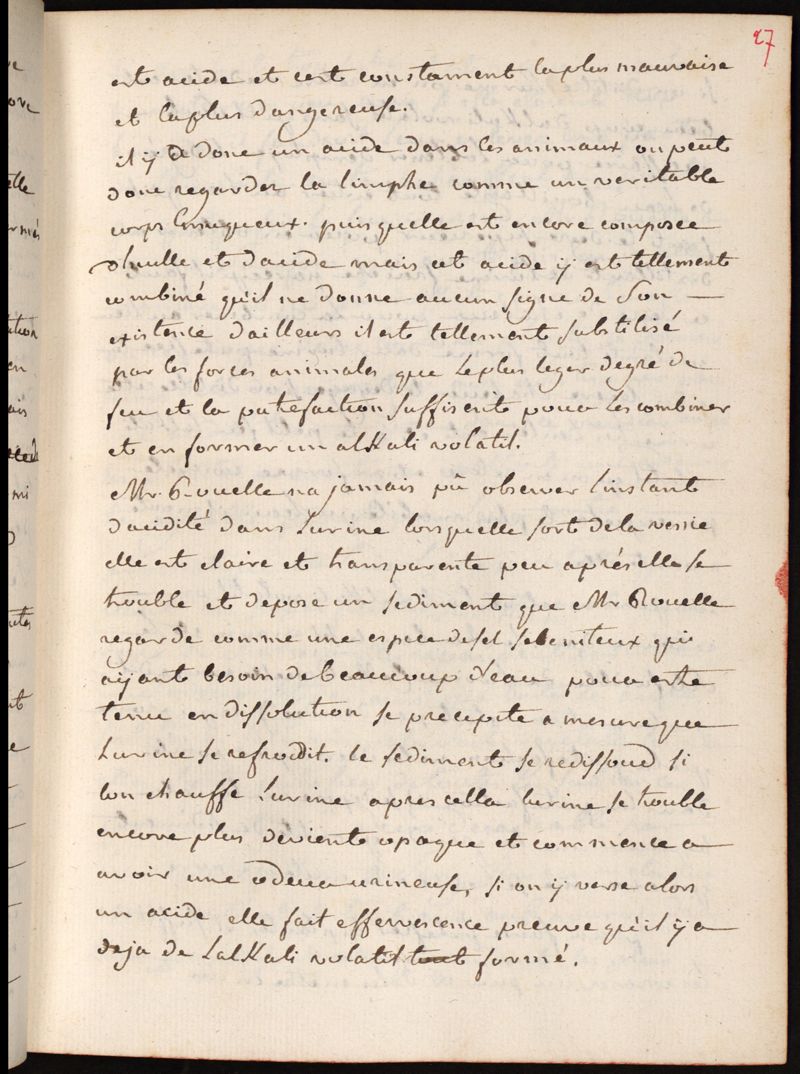 27
est acide et cest constament la plus mauvaise
et la plus dangereuse.
il ÿ a donc un acide dans les animaux on peut
donc regarder la limphe comme un veritable
corps muqueux. puis quelle est encore composee
dhuille et dacide mais cet acide ÿ est tellement
combiné qu'il ne donne aucun signe de son —
existence dailleurs il est tellement subtilisé
par les forces animales que le plus leger degré de
feu et la putefaction suffisent pour les combiner
et en former un alKali volatil.
Mr. Rouelle na jamais pû observer linstant
dacidité dans Lurine lorsquelle sort de la vessie
elle est claire et transparente peu aprés elle se
trouble et depose un sediment que Mr Rouelle
regarde comme une espece de sel seleniteux qui
aÿant besoin de beaucoup d'eau pour estre
tenu en dissolution se precipite a mesure que
Lurine se refroidit. le sediment se redissoud si
lon chauffe Lurine apres cella lurine se trouble
encore plus devient opaque et commence a
avoir une odeur urineuse, si on ÿ verse alors
un acide elle fait effervescence preuve qu'il ÿ a
deja de LalKali volatil tout formé.